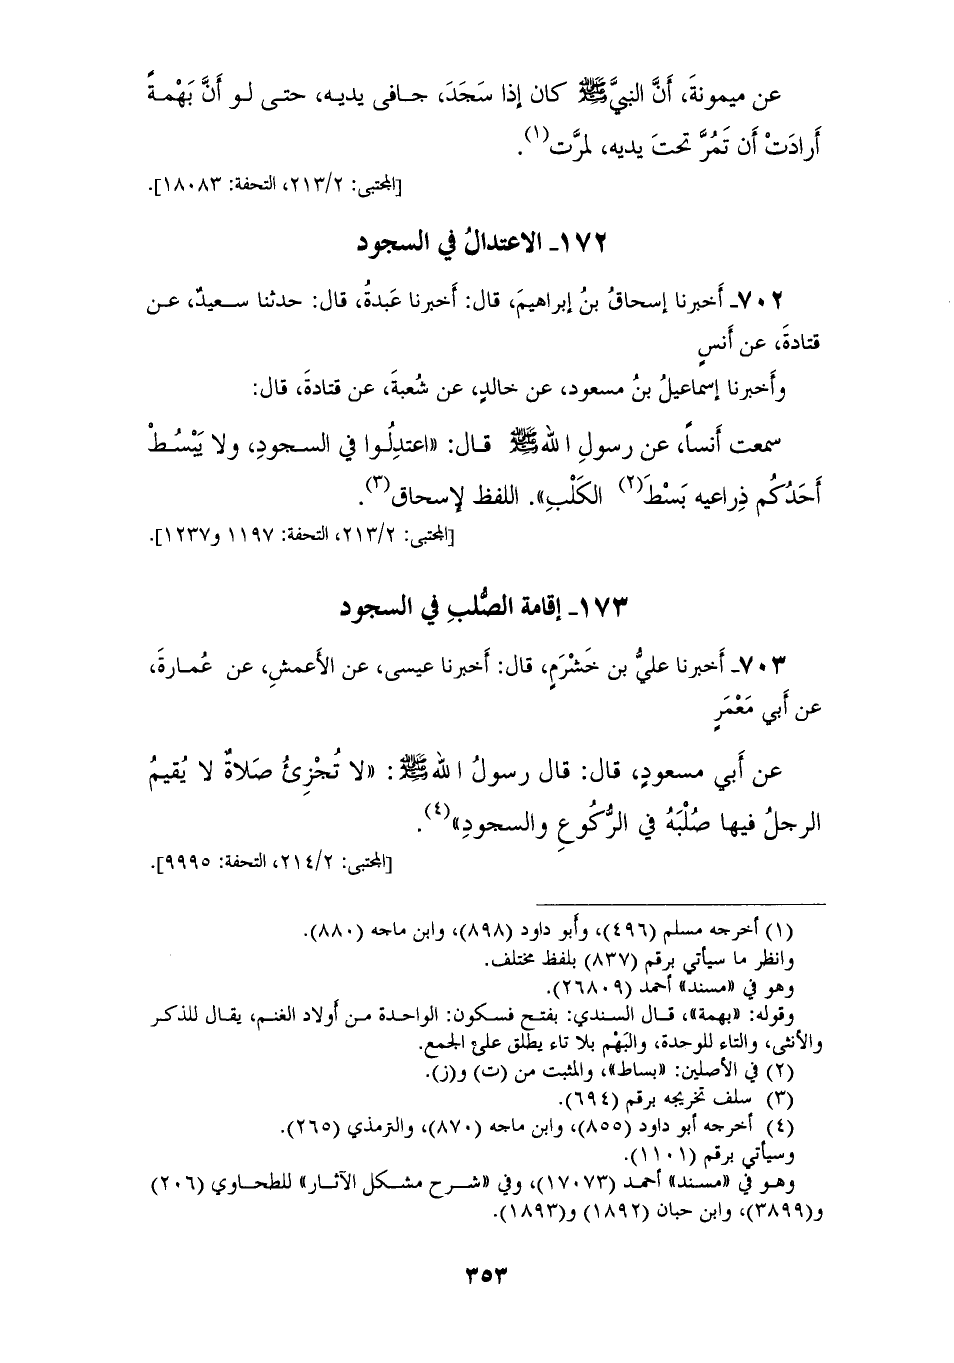 عن ميمونةَ، أنَّ النبيَّ ﷺ كان إذا سَجَدَ، جـافى يديـه، حتـى لـو أنَّ بَهْمـةً
أرادَتْ أن تَمُرَّ تحتَ يديه، لمرَّت(١).
[المجتبى: ٢١٣/٢، التحفة: ١٨٠٨٣].
١٧٢- الاعتدالُ في السجود
٧٠٢- أخبرنا إسحاقُ بنُ إبراهيمَ، قال: أخبرنا عَبدةُ، قال: حدثنا سـعيدٌ، عـن
قتادةَ، عن أنسٍ
وأخبرنا إسماعيلُ بنُ مسعود، عن خالدٍ، عن شُعبةَ، عن قتادةَ، قال:
سمعت أنساً، عن رسولِ الله ﷺ قـال: «اعتدِلُـوا في السـجودِ، ولا يَبْسُـطْ
أحَدُكُم ذِراعيه بَسْطَ(٢) الكَلْبِ». اللفظ لإسحاق(٣).
[المجتبى: ٢١٣/٢، التحفة: ١١٩٧ و١٢٣٧].
١٧٣- إقامة الصُّلبِ في السجود
٧٠٣- أخبرنا عليُّ بن خَشْرَمٍ، قال: أخبرنا عيسى، عن الأعمشِ، عن عُمـارةَ،
عن أبي مَعْمَرٍ
عن أبي مسعودٍ، قال: قال رسولُ الله ﷺ: «لا تُجْزِئُ صَلاةٌ لا يُقيمُ
الرجلُ فيها صُلْبَهُ في الرُّكُوعِ والسجودِ»(٤).
[المجتبى: ٢١٤/٢، التحفة: ٩٩٩٥].
(١) أخرجه مسلم (٤٩٦)، وأبو داود (٨٩٨)، وابن ماجه (٨٨٠).
وانظر ما سيأتي برقم (٨٣٧) بلفظ مختلف.
وهو في «مسند» أحمد (٢٦٨٠٩).
وقوله: «بهمة»، قـال السـندي: بفتـح فسـكون: الواحـدة مـن أولاد الغنـم، يقـال للذكـر
والأنثى، والتاء للوحدة، والبَهْم بلا تاء يطلق على الجمع.
(٢) في الأصلين: «بساط»، والمثبت من (ت) و(ز).
(٣) سلف تخريجه برقم (٦٩٤).
(٤) أخرجه أبو داود (٨٥٥)، وابن ماجه (٨٧٠)، والترمذي (٢٦٥).
وسيأتي برقم (١١٠١).
وهـو في «مسـند» أحمـد (١٧٠٧٣)، وفي «شـرح مشـكل الآثـار» للطحـاوي (٢٠٦)
و(٣٨٩٩)، وابن حبان (١٨٩٢) و(١٨٩٣).
٣٥٣